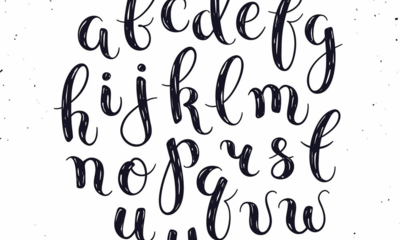 a b c d e f g
h i j k l m
n o p r s t
u q v w